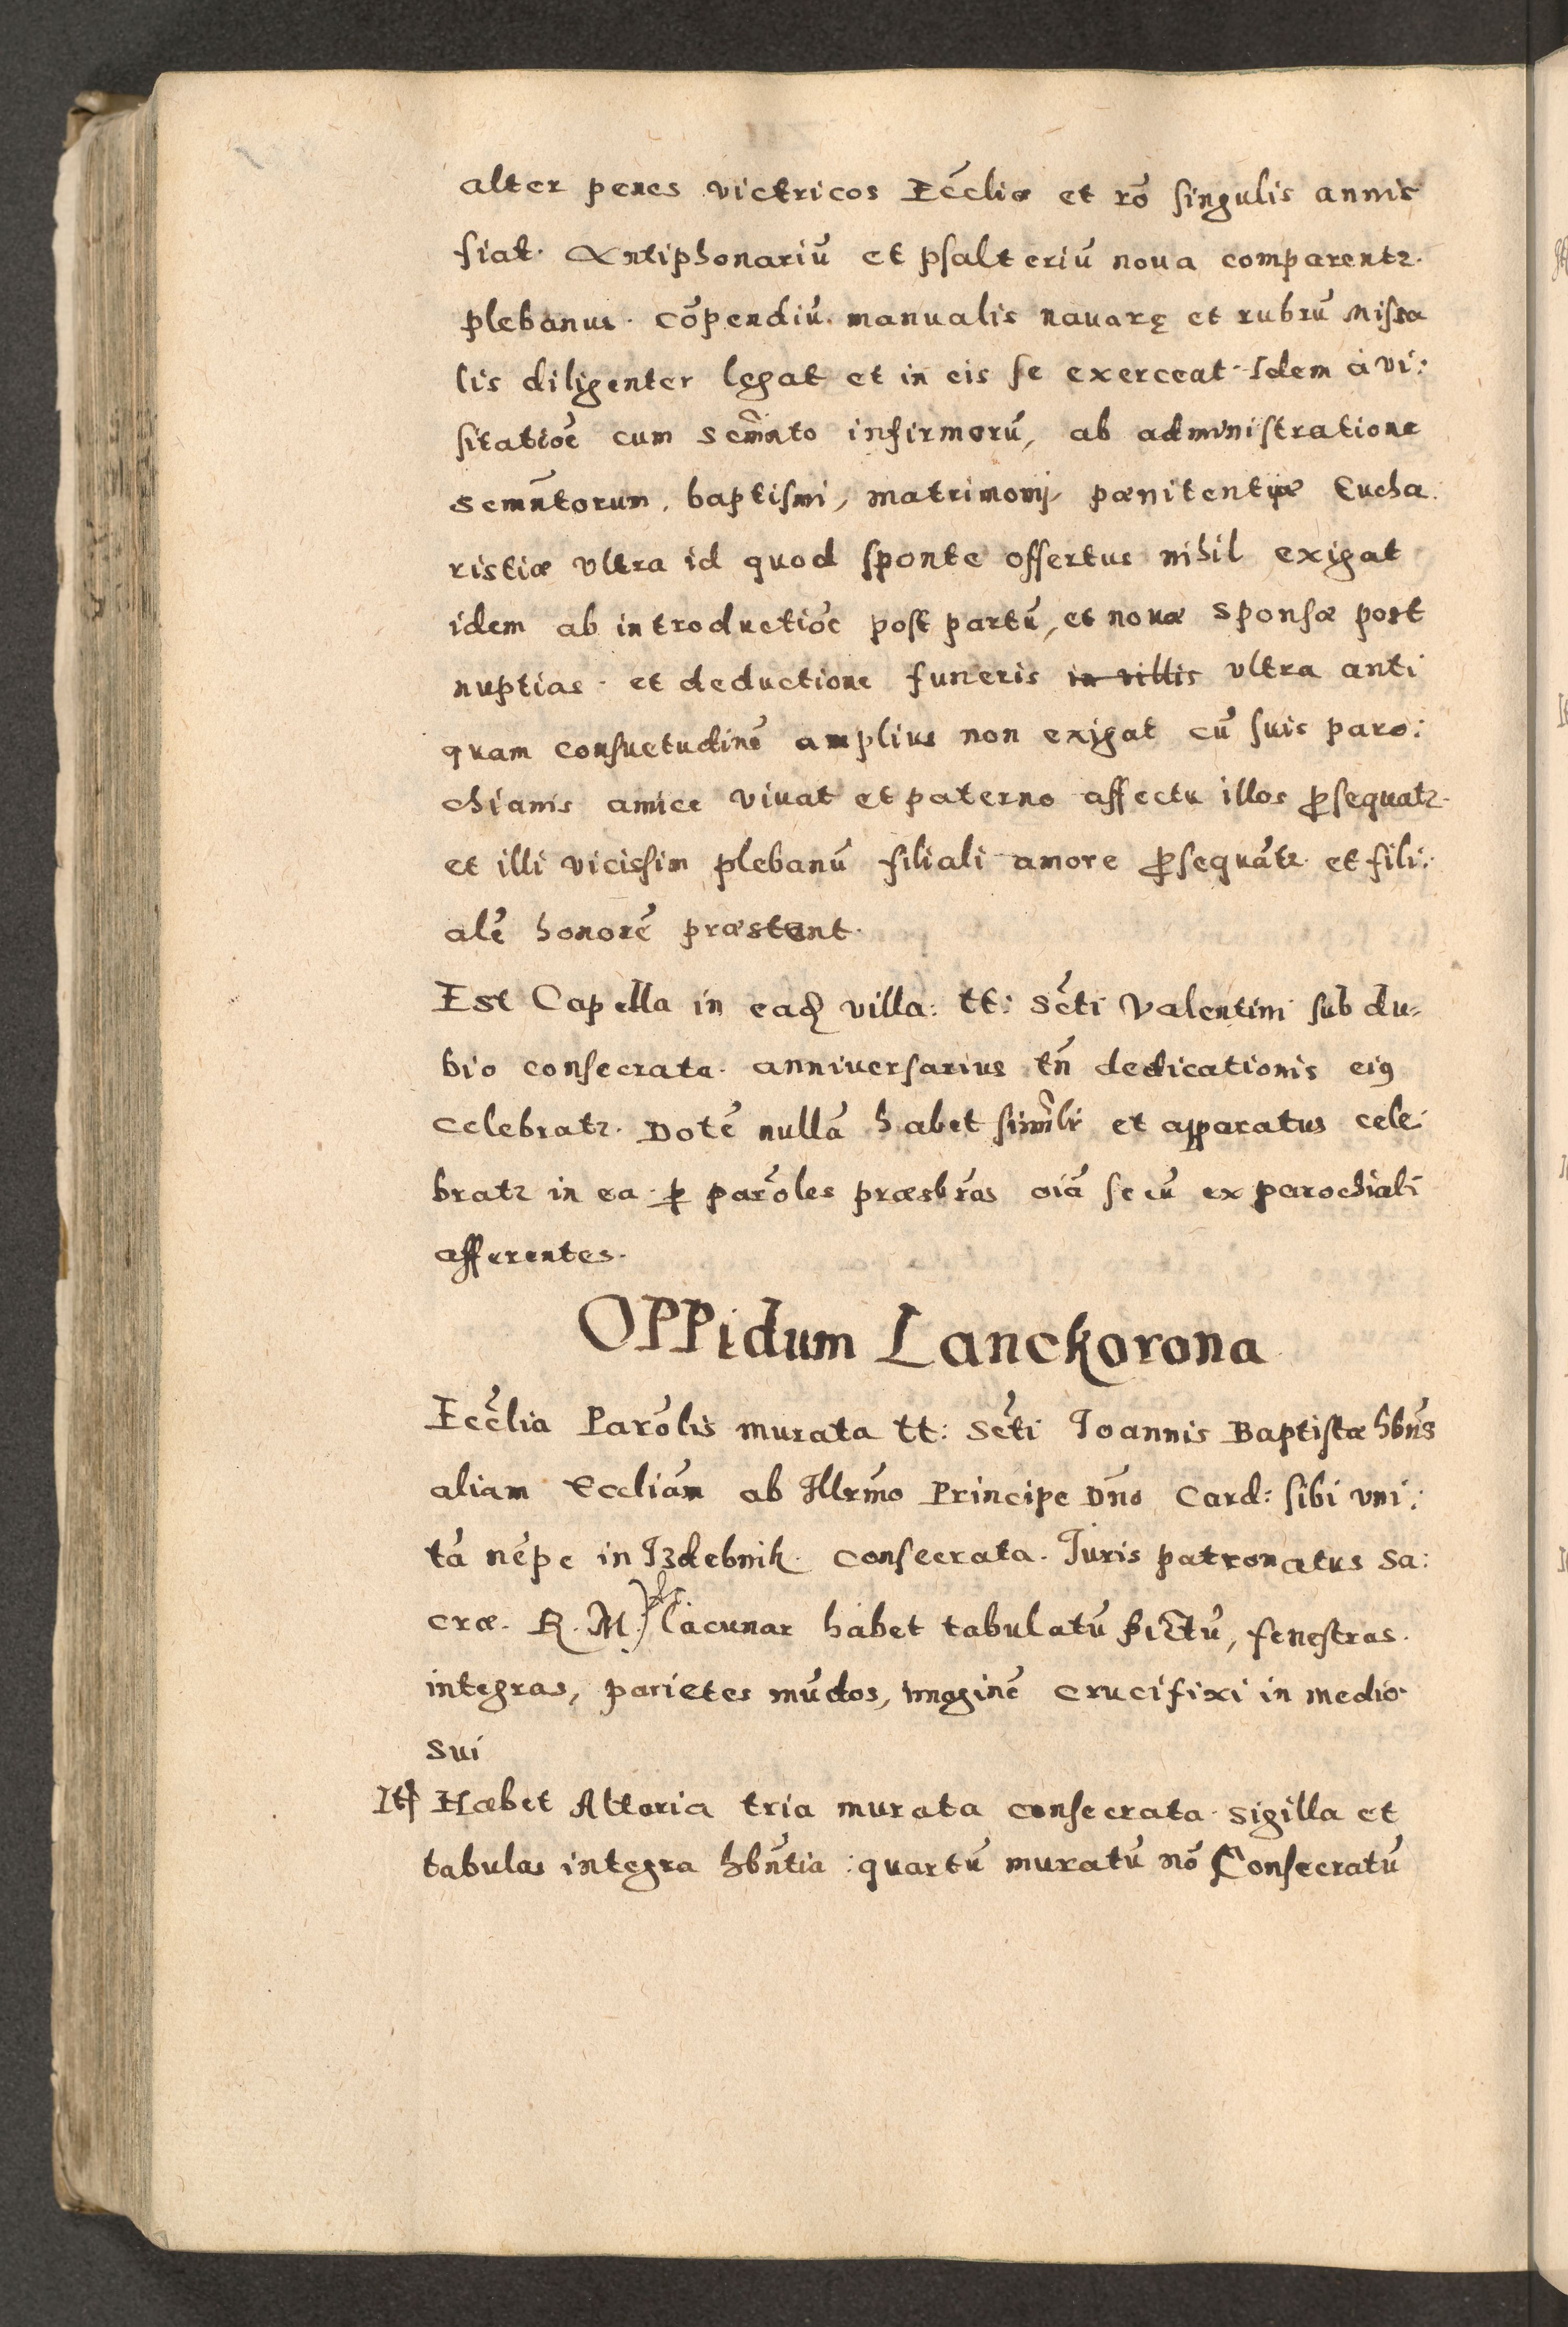 alter penes victricos Eccłiæ et rõ singulis annis
fiat. Antiphonariũ et psalteriũ noua comparentr.
plebanus. Cõpendiũ. manualis nauarę et rubrũ Missa
lis diligenter legat et in eis se exerceat. Idem à vi:
sitatiõe cum Scrm̃nto infirmorũ, ab administratione
Scrmñtorum, baptismi, matrimonij, pœnitentiæ Eucha
ristiæ vltra id quod sponte offertur nihil exigat
idem ab introductiõe post partũ, et nouæ Sponsæ post
nuptias. et deductione funeris in villis vltra anti
quam consuetudinẽ amplius non exigat cũ suis paro:
chianis amice viuat et paterno affectu illos ꝓsequatr.
et illi vicissim plebanũ filiali amore ꝓsequãtr. et fili:
alẽ honorẽ præstent.
Est Capella in eadem villa: tt: Scti Valentini sub du:
bio consecrata. anniversarius tñ dedicationis eiꝰ
celebratr. Dotẽ nullã habet similr et apparatus cele
bratr in ea ꝑ parõles præsbr̃os oiã secũ ex parochiali
afferentes.
OPPidum Lanckorona
Eccłia Parõlis murata tt: Scti Ioannis Baptistæ hbñs
aliam Eccliãm ab Illrmõ Principe Dño Card: sibi vni:
tã nẽpe in Izdebnik. Consecrata. Iuris patronatus Sa:
cræ. R. M. lacunar habet tabulatũ pictũ, fenestras
integras, parietes mũdos, imaginẽ crucifixi in medio
sui
Itẽ Habet Altaria tria murata consecrata. sigilla et
tabulas integra hbñtia: quartũ muratũ nõ Consecratũ